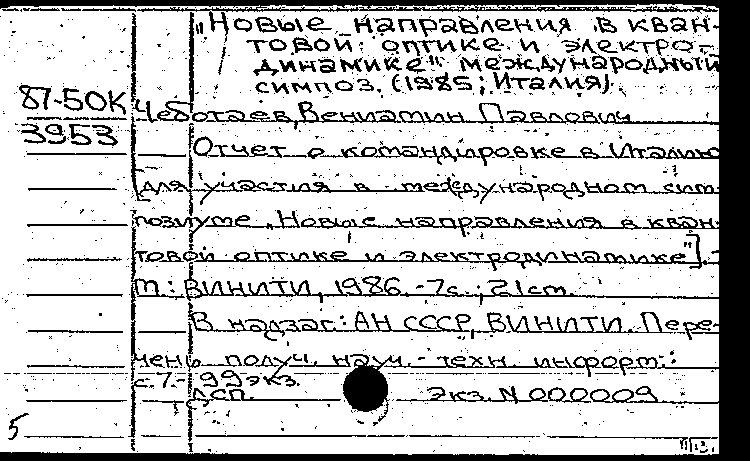 "Новые направления в кван-
товой оптике и электро-
динамике" международный
симпоз. (1985; Италия).
87-50К Чеботаев, Вениамин Павлович
3953
Отчет о командировке в Италию
[для участия в международном сим-
позиуме „Новые направления в кван-
товой оптике и электродинамике"]. -
М.: ВИНИТИ, 1986. - 7с.; 21см.
В надзаг: АН СССР, ВИНИТИ. Пере-
чень получ. науч.-техн. информ.:
с.7.- 99экз.
ДСП. Экз. N 000009
5